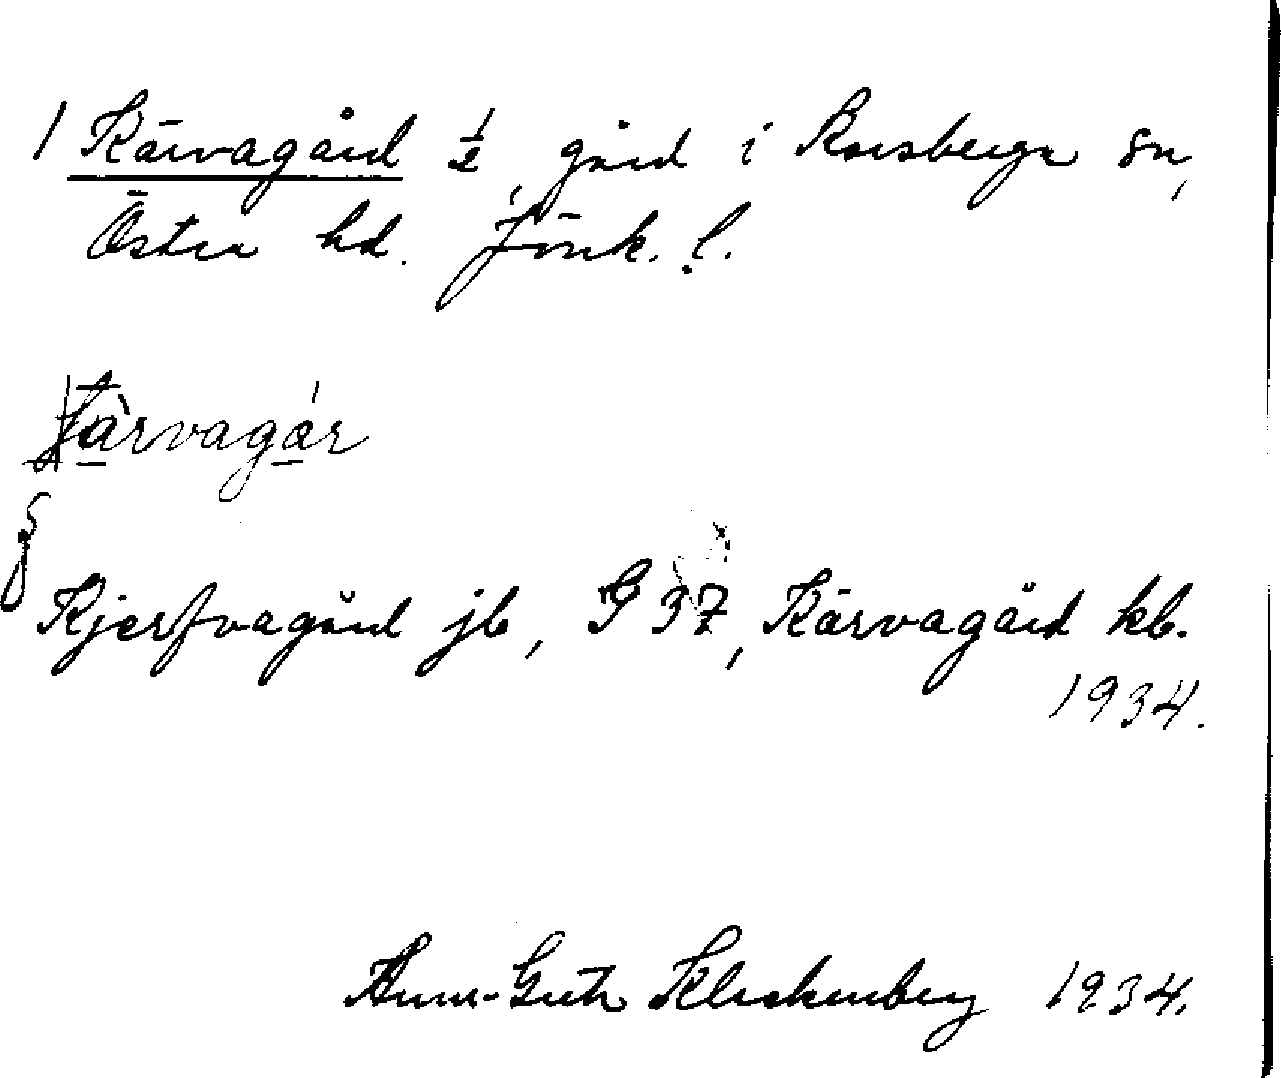 1 Kärvagård ½, gård i Korsberga sn,
Östra hd. Jönk. l.
Kjerfvagård jb, G 37, Kärvagård kb.
1934.
Ann-Greta Kleckenberg 1934.